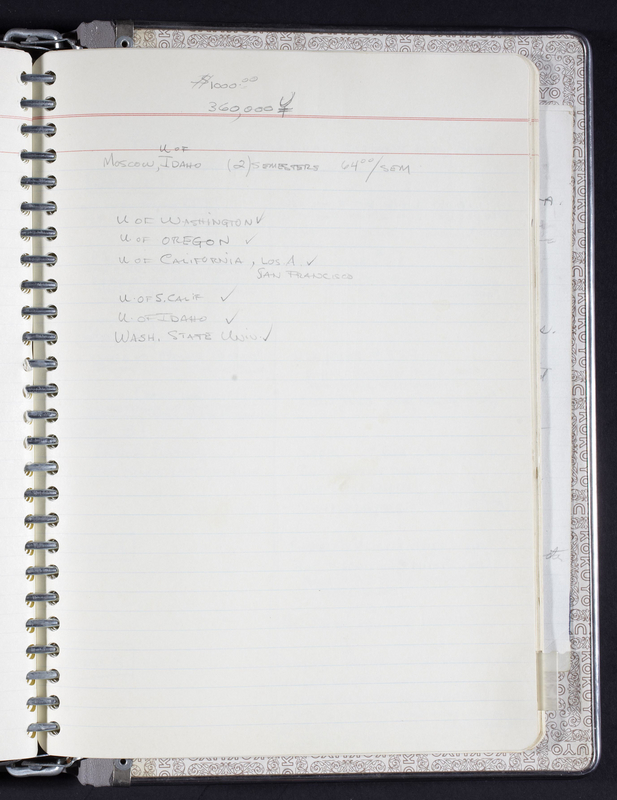 $1000.00
360,000 ¥
U OF
MOSCOW, IDAHO (2) SEMESTERS 64.00/SEM
U OF WASHINGTON ✓
U OF OREGON ✓
U OF CALIFORNIA, LOS A. ✓
SAN FRANCISCO
U OF S. CALIF ✓
U OF IDAHO ✓
WASH. STATE UNIV ✓
KOKUYO